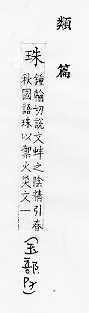 類篇
珠
鍾輸切說文蚌之陰精引春
秋國語珠以禦火災文一
(玉部P)